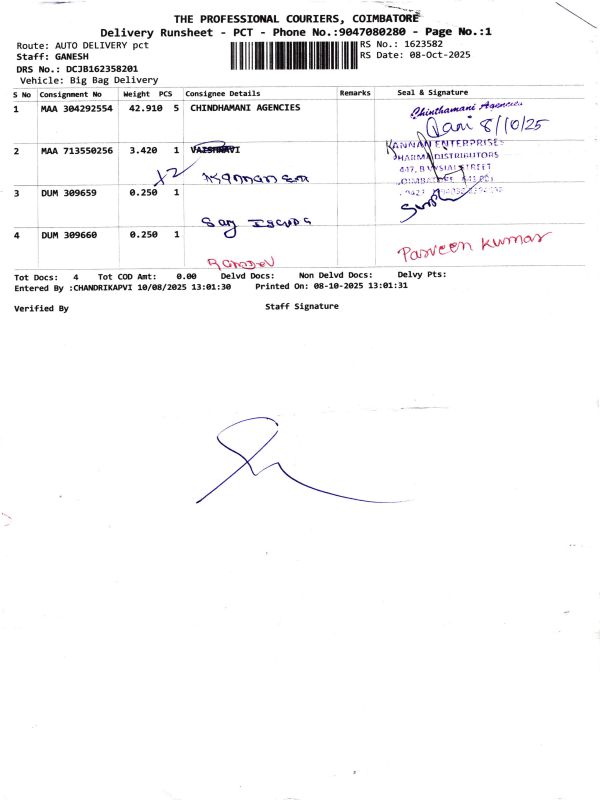 THE PROFESSIONAL COURIERS, COIMBATORE
Delivery Runsheet - PCT - Phone No.:9047080280 - Page No.:1
Route: AUTO DELIVERY pct
RS No.: 1623582
Staff: GANESH
RS Date: 08-Oct-2025
DRS No.: DCJB162358201
Vehicle: Big Bag Delivery
S No Consignment No Weight PCS Consignee Details Remarks Seal & Signature
1 MAA 304292554 42.910 5 CHINDHAMANI AGENCIES
Chinthamani Agencies
Rani 8/10/25
2 MAA 713550256 3.420 1 VAISHNAVI
KANNAN ENTERPRISES
PHARMA DISTRIBUTORS
447, STREET
x2 Kannan
3 DUM 309659 0.250 1
4 DUM 309660 0.250 1
Parveen Kumar
Tot Docs: 4 Tot COD Amt: 0.00 Delvd Docs: Non Delvd Docs: Delvy Pts:
Entered By :CHANDRIKAPVI 10/08/2025 13:01:30 Printed On: 08-10-2025 13:01:31
Verified By Staff Signature